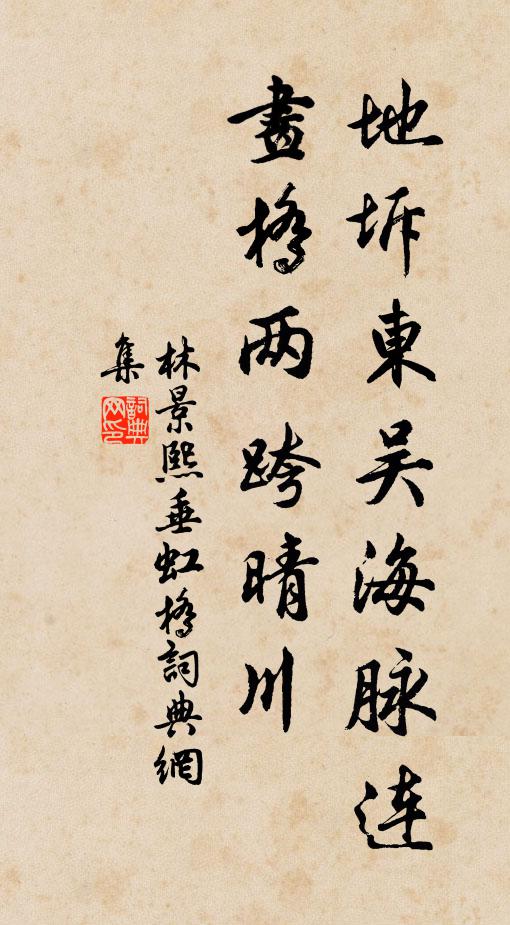 地坼東吴海脉连
畫橋两跨晴川
林景熙垂虹橋詞典網
集
詞典网印